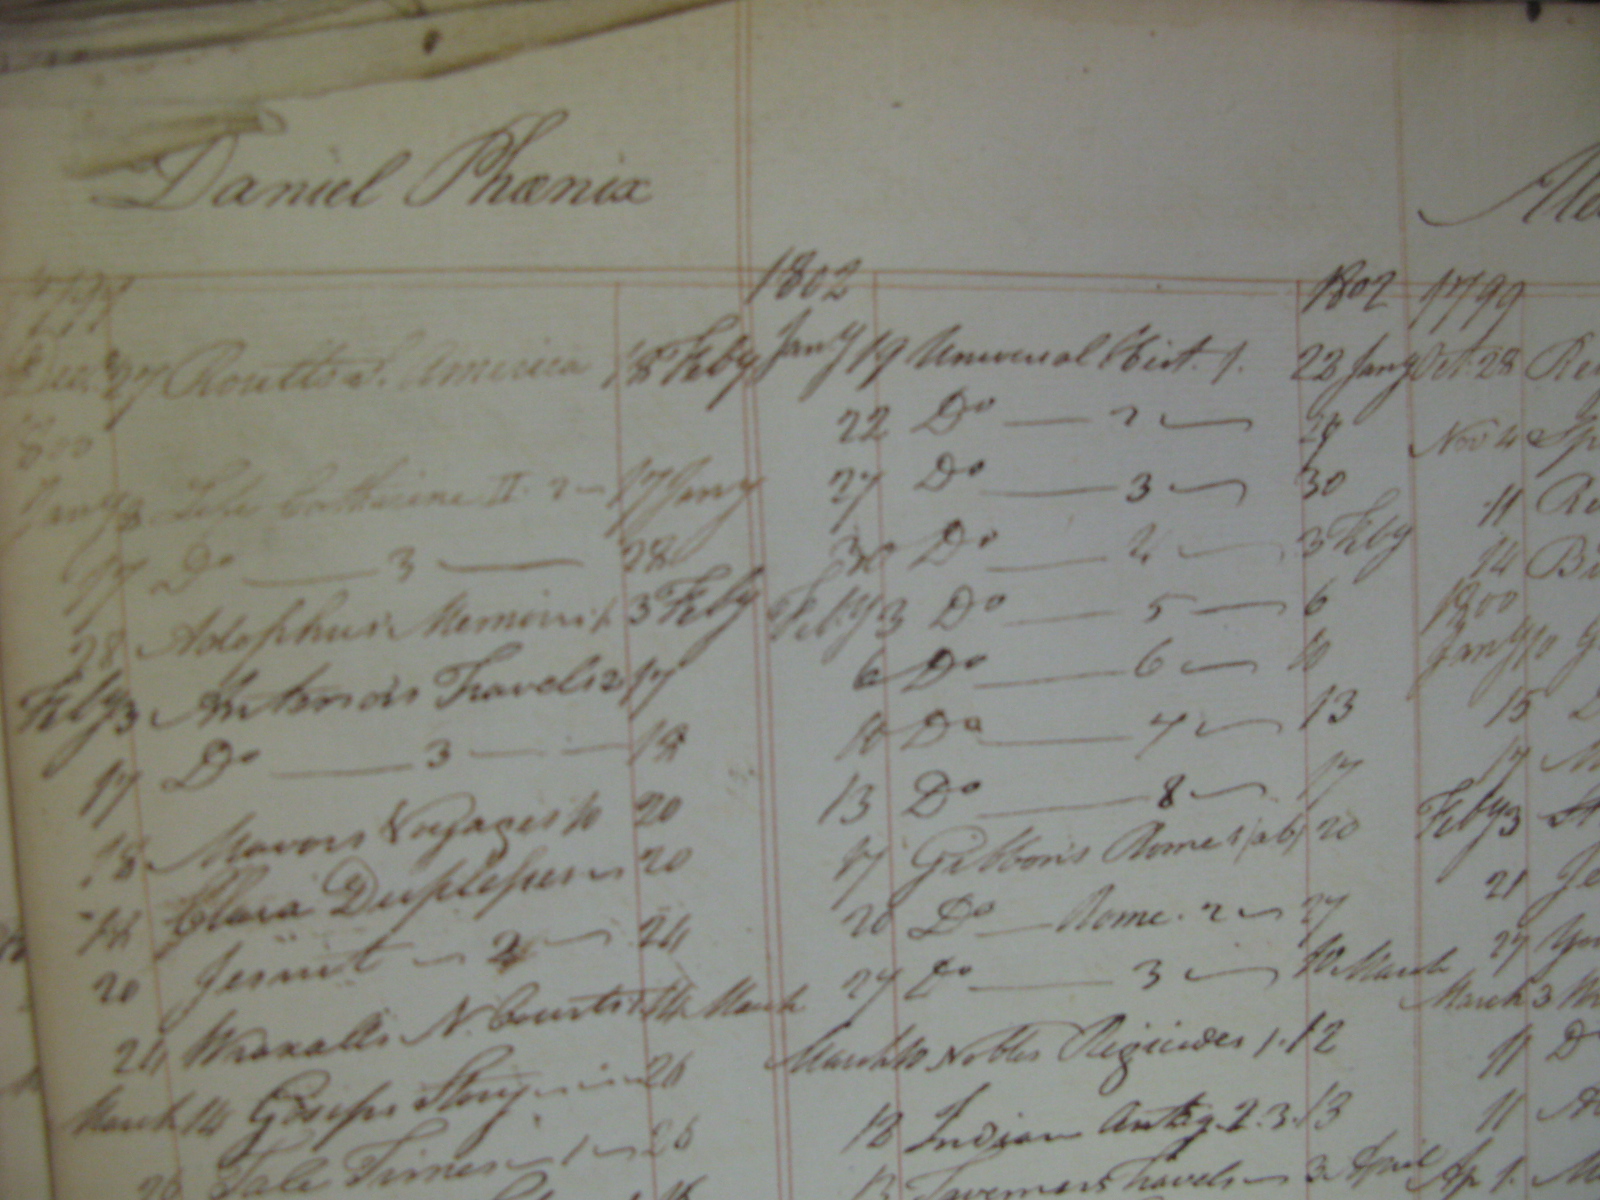 Daniel Phœnix
1799
Decr 27 Routts S. America 18 Feby
1800
Jany 8 Life Catharine II. 2 — 17 Jany
17 Do — 3 — 28
28 Adolphus Memoirs 1. 3 Feby
Feby 3 Travels 2 17
17 Do — 3 — 18
18 Mavors Voyages 10 20
18 Clara Duplessis 20
20 Jesuit — 2 — 24
24 Wraxalls N. Courts 1. 14 March
March 14 Gossips Story 26
26 Tale Times — 1 — 26
1802 1802
Jany 19 Universal Hist. 1. 22 Jany
22 Do — 2 — 27
27 Do — 3 — 30
30 Do — 4 — 3 Feby
Feby 3 Do — 5 — 6
6 Do — 6 — 10
10 Do — 7 — 13
13 Do — 8 — 17
17 Gibbons Rome 1 (ab) 20
20 Do — Rome. 2 — 27
27 Do — 3 — 10 March
March 10 Nobles Regicides 1. 12
12 Indian Antiq. 2. 3. 13
13 Travels — 3 April
1799
Oct. 28
Nov 4
11
14
1800
Jany 10
15
17
Feby 3
21
27
March 3
11 Do
11
Ap 1.